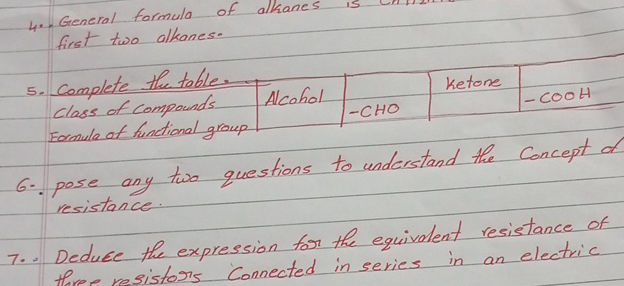 4. General formula of alkanes is
first two alkanes.
5. Complete the table.
Class of compounds Alcohol Ketone
Formula of functional group -CHO -COOH
6. pose any two questions to understand the Concept of
resistance.
7. Deduce the expression for the equivalent resistance of
three resistors Connected in series in an electric